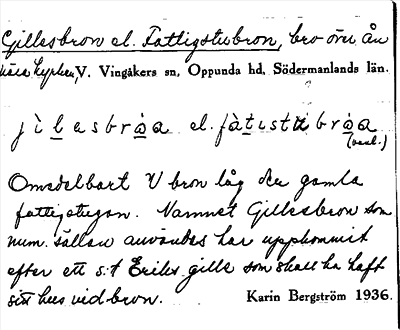 Gillesbron el. Fattigstubron, bro över ån
nära kyrkan, V. Vingåkers sn, Oppunda hd, Södermanlands län.
jìlesbrơa el. fàtistubrơa
(vard.)
Omedelbart V bron låg den gamla
fattigstugan. Namnet Gillesbron som
num. sällan användes har uppkommit
efter ett s:t Eriks gille som skall ha haft
sitt hus vid bron. Karin Bergström 1936.